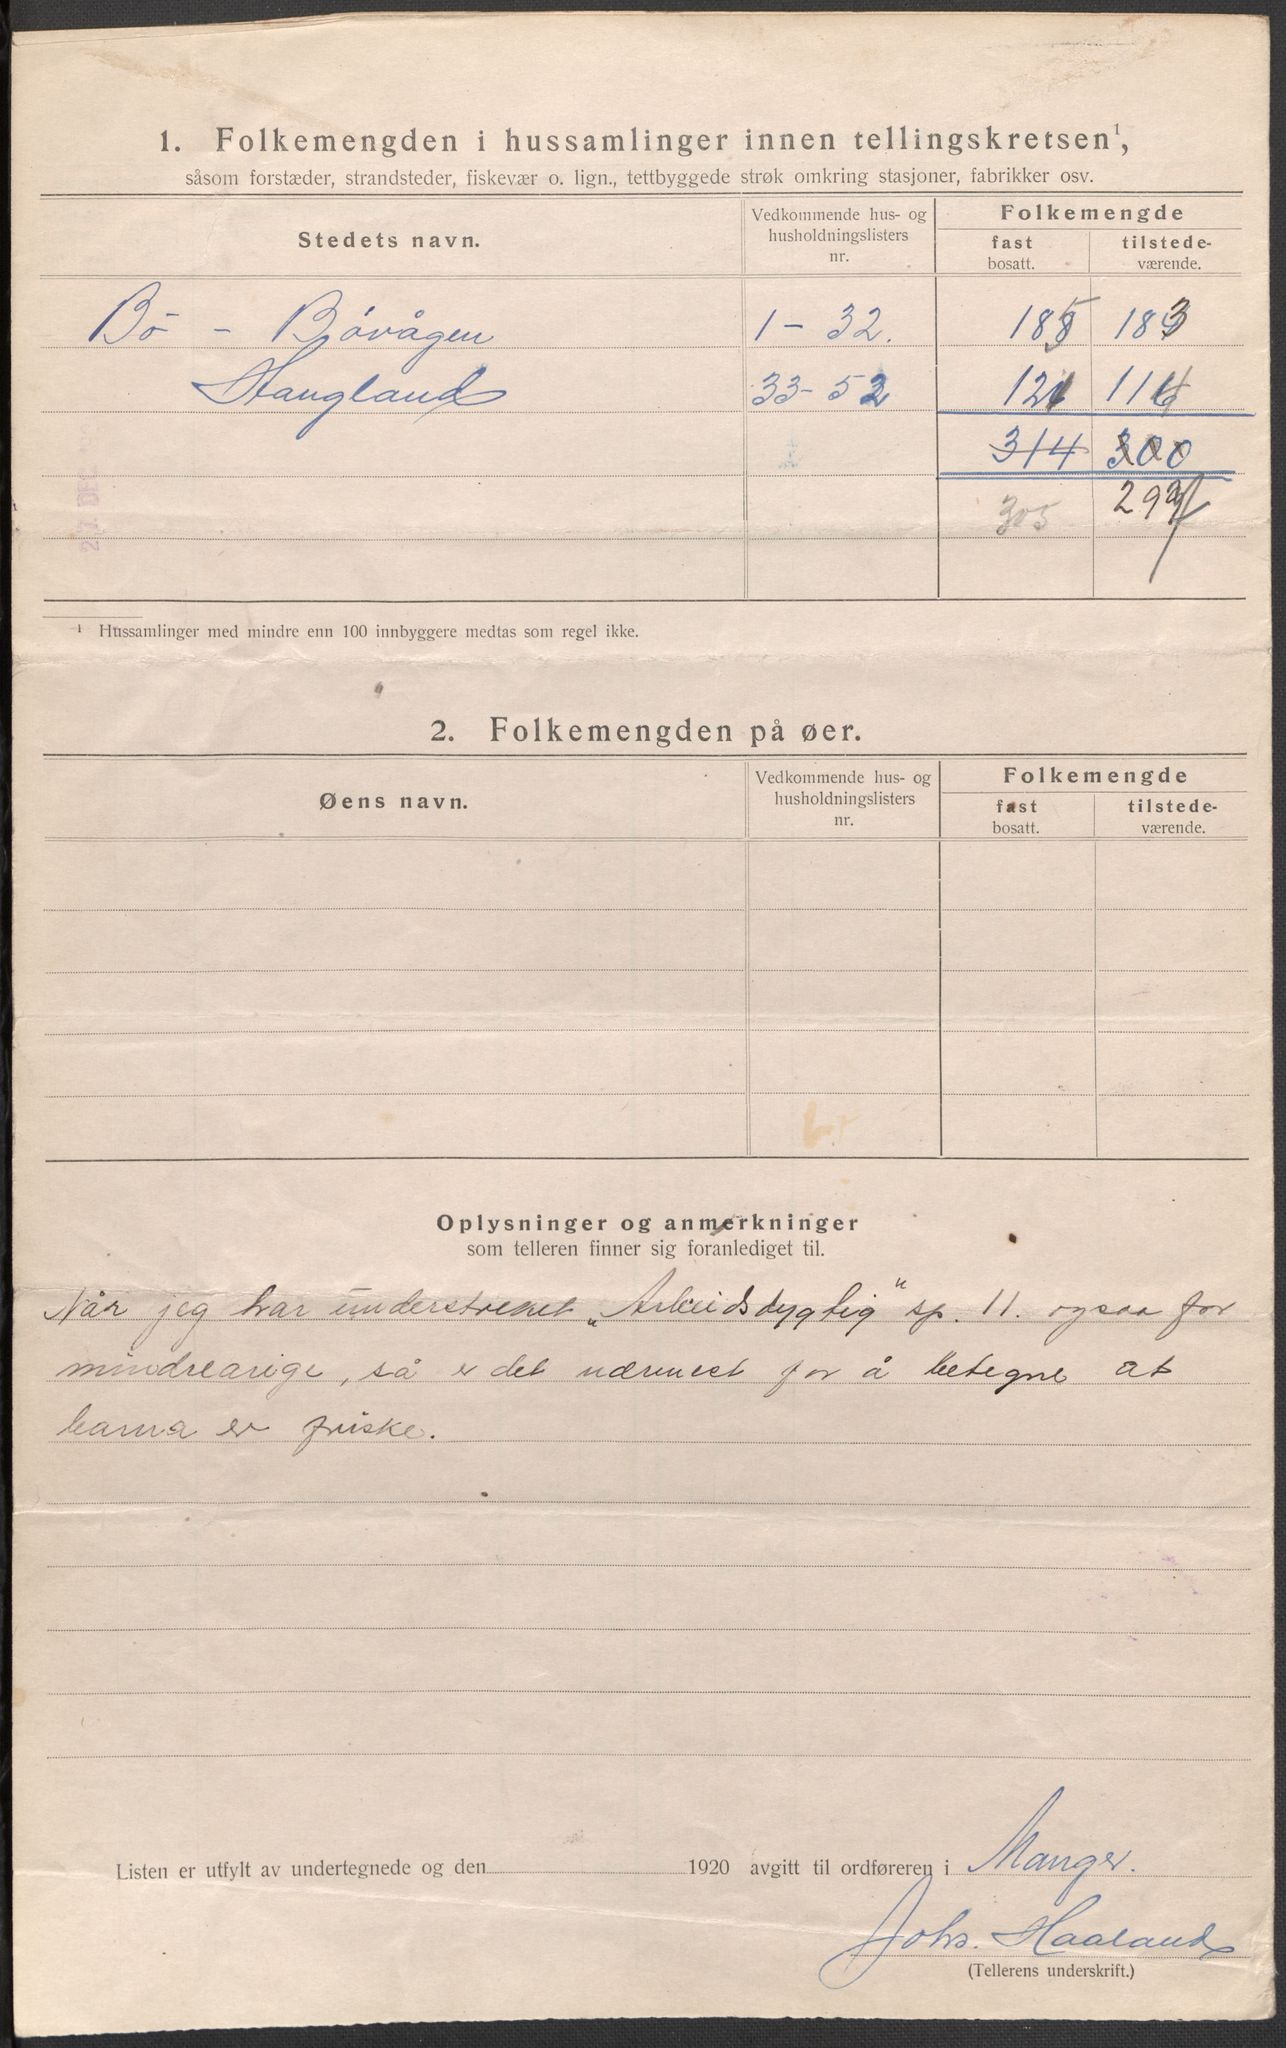 1. Folkemengden i hussamlinger innen tellingskretsen¹,
såsom forstæder, strandsteder, fiskevær o. lign., tettbyggede strøk omkring stasjoner, fabrikker osv.
Stedets navn. Vedkommende hus- og husholdningslisters nr. Folkemengde
fast bosatt. tilstede-værende.
Bö - Bövågen 1 - 32. 185 183
Haugland 33 - 52 121 114
314 300
305 293
27 DE
¹ Hussamlinger med mindre enn 100 innbyggere medtas som regel ikke.
2. Folkemengden på øer.
Øens navn. Vedkommende hus- og husholdningslisters nr. Folkemengde
fast bosatt. tilstede-værende.
Oplysninger og anmerkninger
som telleren finner sig foranlediget til.
Når jeg har understreket „Arbeidsdygtig" sp. 11. ogsaa for
mindreårige, så er det nærmest for å betegne at
barna er friske.
Listen er utfylt av undertegnede og den 1920 avgitt til ordføreren i Manger.
Johs. Haaland
(Tellerens underskrift.)